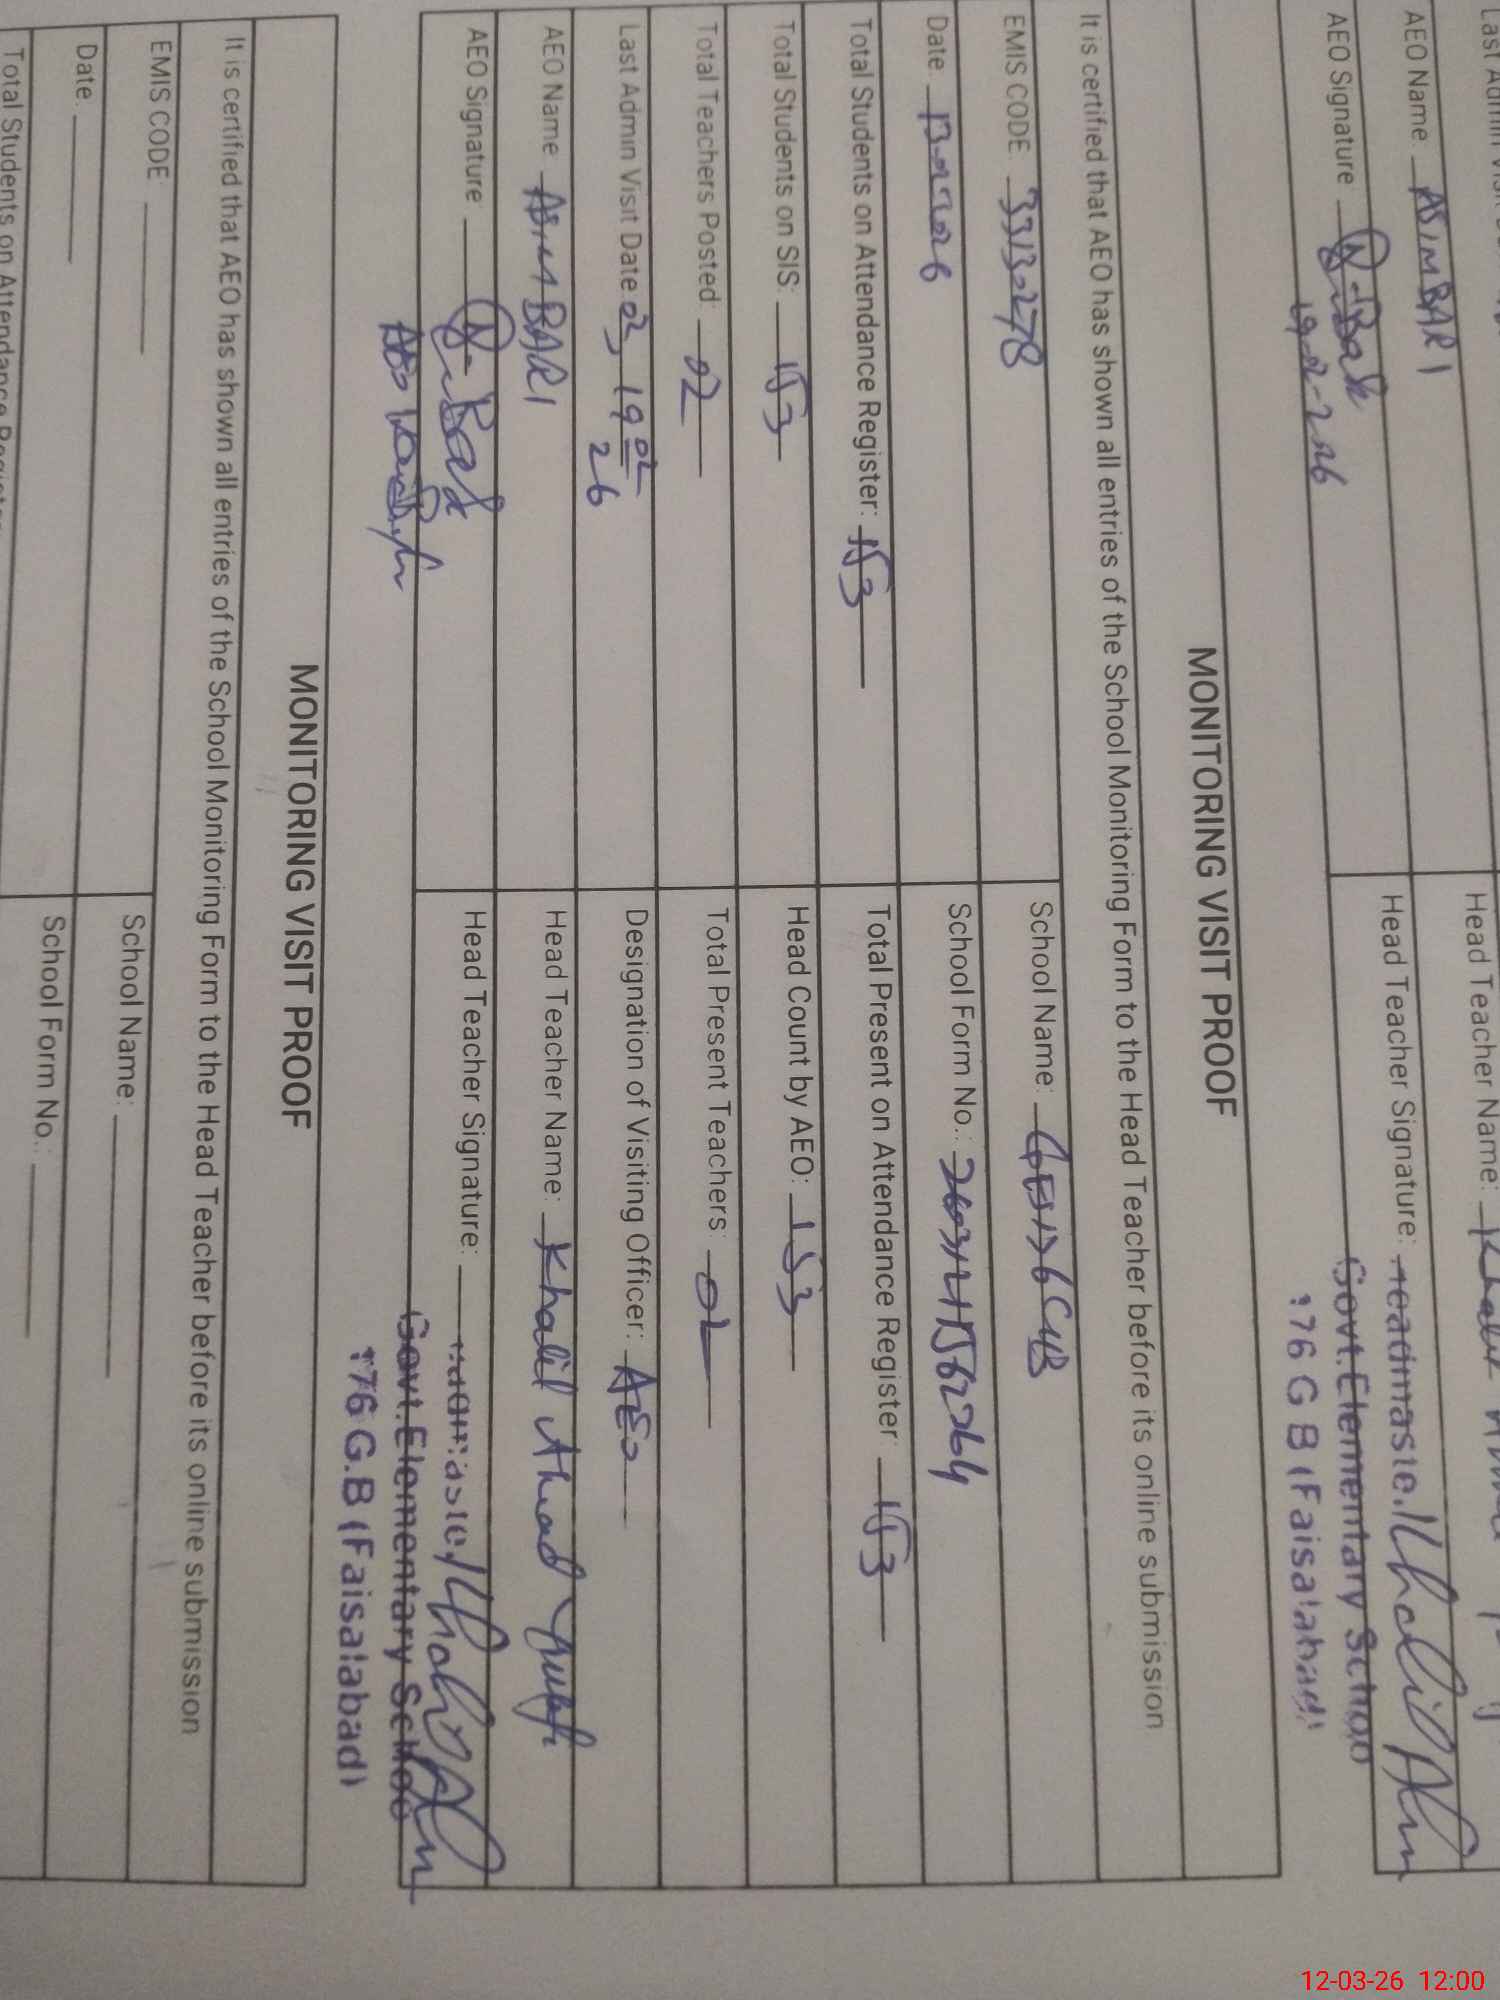 Head Teacher Name:
AEO Name ASIM BARI
Head Teacher Signature:
AEO Signature
19-02-2026
Govt. Elementary Schoo
176 G B (Faisalabad)
MONITORING VISIT PROOF
It is certified that AEO has shown all entries of the School Monitoring Form to the Head Teacher before its online submission
EMIS CODE: 33130278 School Name:
Date: School Form No.:
Total Students on Attendance Register: 153 Total Present on Attendance Register 153
Total Students on SIS: 153 Head Count by AEO: 153
Total Teachers Posted: 02 Total Present Teachers: 02
Last Admin Visit Date 19 02 26 Designation of Visiting Officer: AEO
AEO Name ASIM BARI Head Teacher Name: Khalil Ahmad
AEO Signature Head Teacher Signature:
Govt. Elementary Schoo
176 G.B (Faisalabad)
MONITORING VISIT PROOF
It is certified that AEO has shown all entries of the School Monitoring Form to the Head Teacher before its online submission
EMIS CODE: School Name:
Date: School Form No.:
Total Students on Attendance Register
12-03-26 12:00